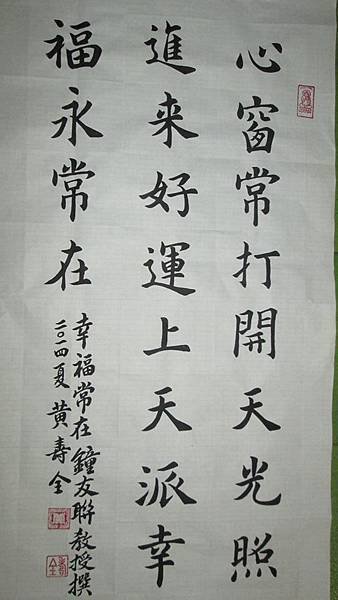 心窗常打開天光照
進来好運上天派幸
福永常在
幸福常在鐘友聯教授撰
二〇一四夏黃壽全